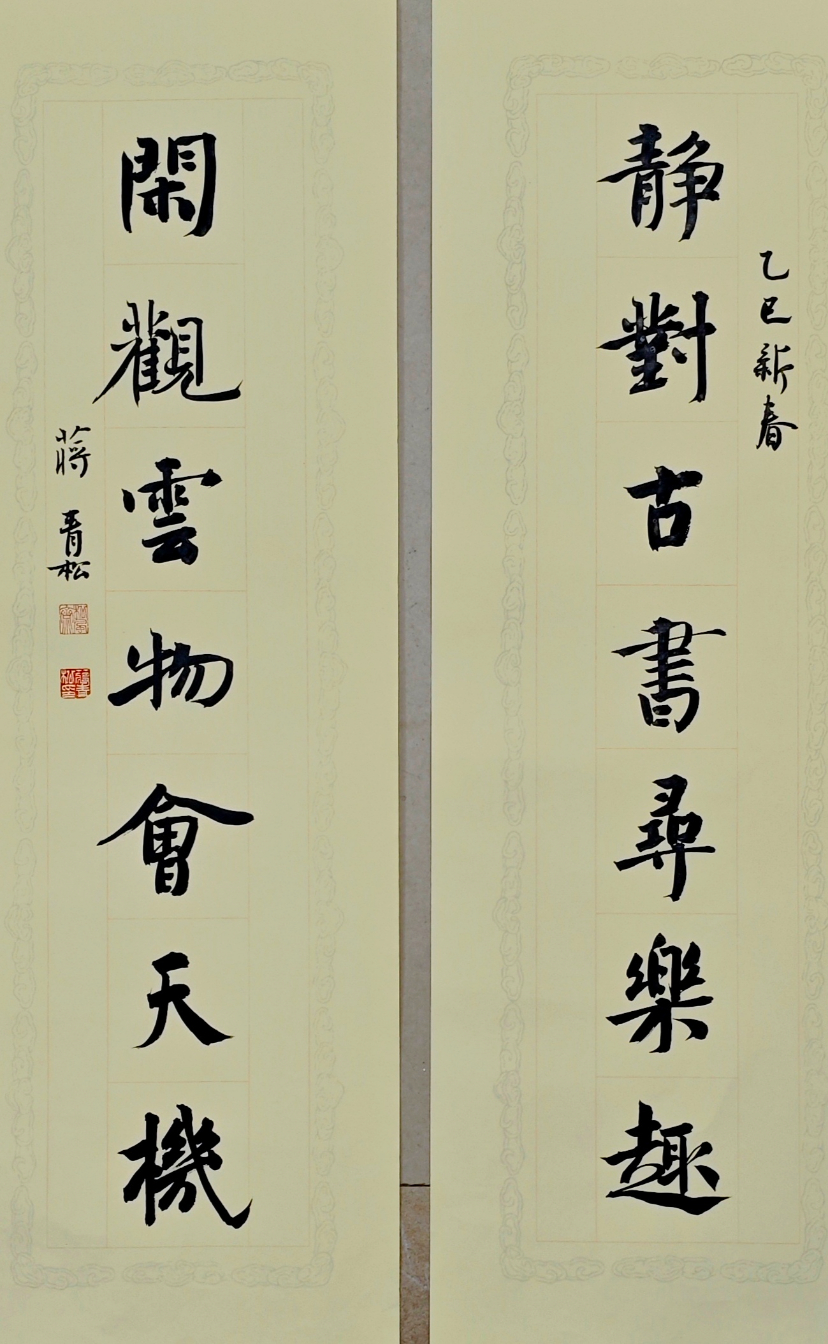 乙巳新春
静對古書尋樂趣
閑觀雲物會天機
蔣青松